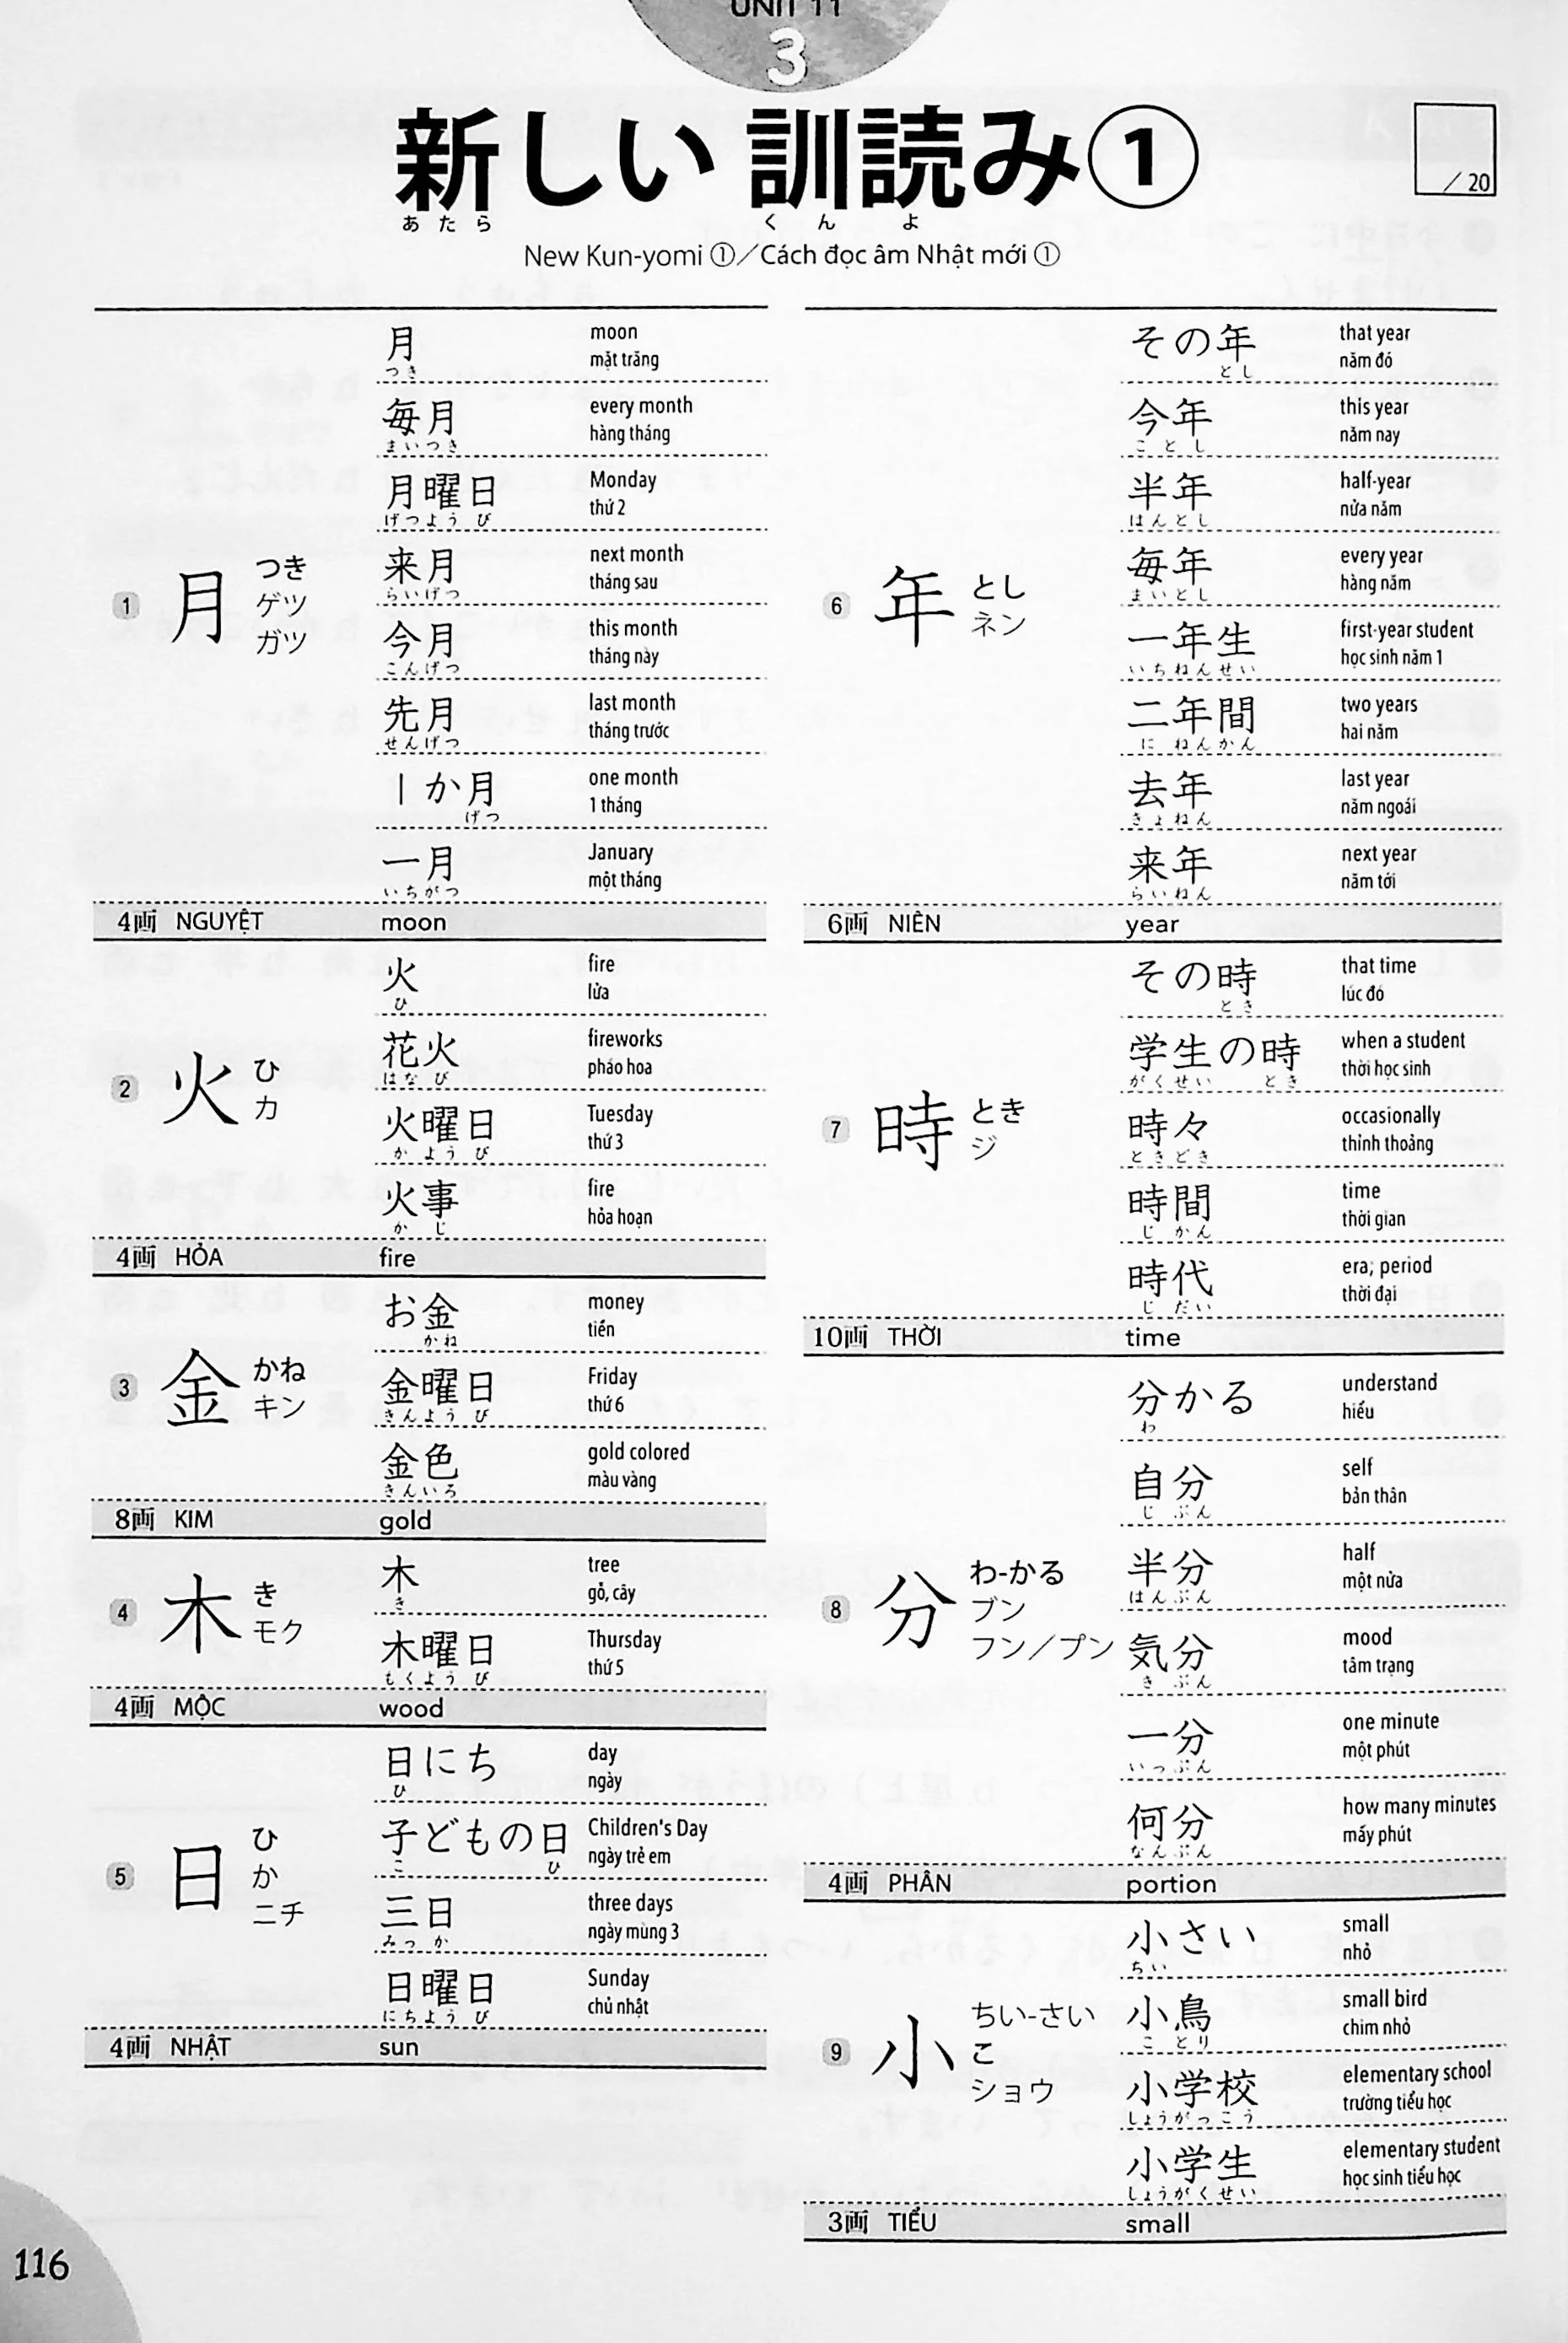 UNIT 11
3
新しい 訓読み①
あたら くん よ
New Kun-yomi ①／Cách đọc âm Nhật mới ①
／20
1 月
つき
ゲツ
ガツ
月 moon
つき mặt trăng
毎月 every month
まいつき hàng tháng
月曜日 Monday
げつようび thứ 2
来月 next month
らいげつ tháng sau
今月 this month
こんげつ tháng này
先月 last month
せんげつ tháng trước
１か月 one month
げつ 1 tháng
一月 January
いちがつ một tháng
4画 NGUYỆT moon
2 火
ひ
カ
火 fire
ひ lửa
花火 fireworks
はなび pháo hoa
火曜日 Tuesday
かようび thứ 3
火事 fire
かじ hỏa hoạn
4画 HỎA fire
3 金
かね
キン
お金 money
かね tiền
金曜日 Friday
きんようび thứ 6
金色 gold colored
きんいろ màu vàng
8画 KIM gold
4 木
き
モク
木 tree
き gỗ, cây
木曜日 Thursday
もくようび thứ 5
4画 MỘC wood
5 日
ひ
か
ニチ
日にち day
ひ ngày
子どもの日 Children's Day
こ ひ ngày trẻ em
三日 three days
みっか ngày mùng 3
日曜日 Sunday
にちようび chủ nhật
4画 NHẬT sun
6 年
とし
ネン
その年 that year
とし năm đó
今年 this year
ことし năm nay
半年 half-year
はんとし nửa năm
毎年 every year
まいとし hàng năm
一年生 first-year student
いちねんせい học sinh năm 1
二年間 two years
にねんかん hai năm
去年 last year
きょねん năm ngoái
来年 next year
らいねん năm tới
6画 NIÊN year
7 時
とき
ジ
その時 that time
とき lúc đó
学生の時 when a student
がくせい とき thời học sinh
時々 occasionally
ときどき thỉnh thoảng
時間 time
じかん thời gian
時代 era; period
じだい thời đại
10画 THỜI time
8 分
わ-かる
ブン
フン／プン
分かる understand
わ hiểu
自分 self
じぶん bản thân
半分 half
はんぶん một nửa
気分 mood
きぶん tâm trạng
一分 one minute
いっぷん một phút
何分 how many minutes
なんぷん mấy phút
4画 PHÂN portion
9 小
ちい-さい
こ
ショウ
小さい small
ちい nhỏ
小鳥 small bird
ことり chim nhỏ
小学校 elementary school
しょうがっこう trường tiểu học
小学生 elementary student
しょうがくせい học sinh tiểu học
3画 TIỂU small
116